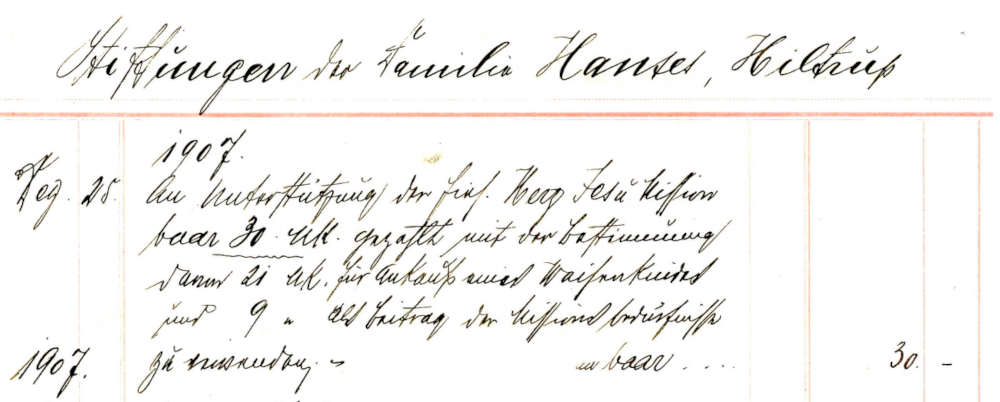 Stiftungen der Familie Hanses, Hiltrup
1907.
Dez. 25. An Unterstützung der hies. Herz Jesu Mission
baar 30 Mk. gezahlt mit der Bestimmung
davon 21 Mk. für Ankauf eines Waisenkindes
und 9 " als Beitrag der Missionsbedürfnisse
1907. zu verwenden, - in baar .... 30. -